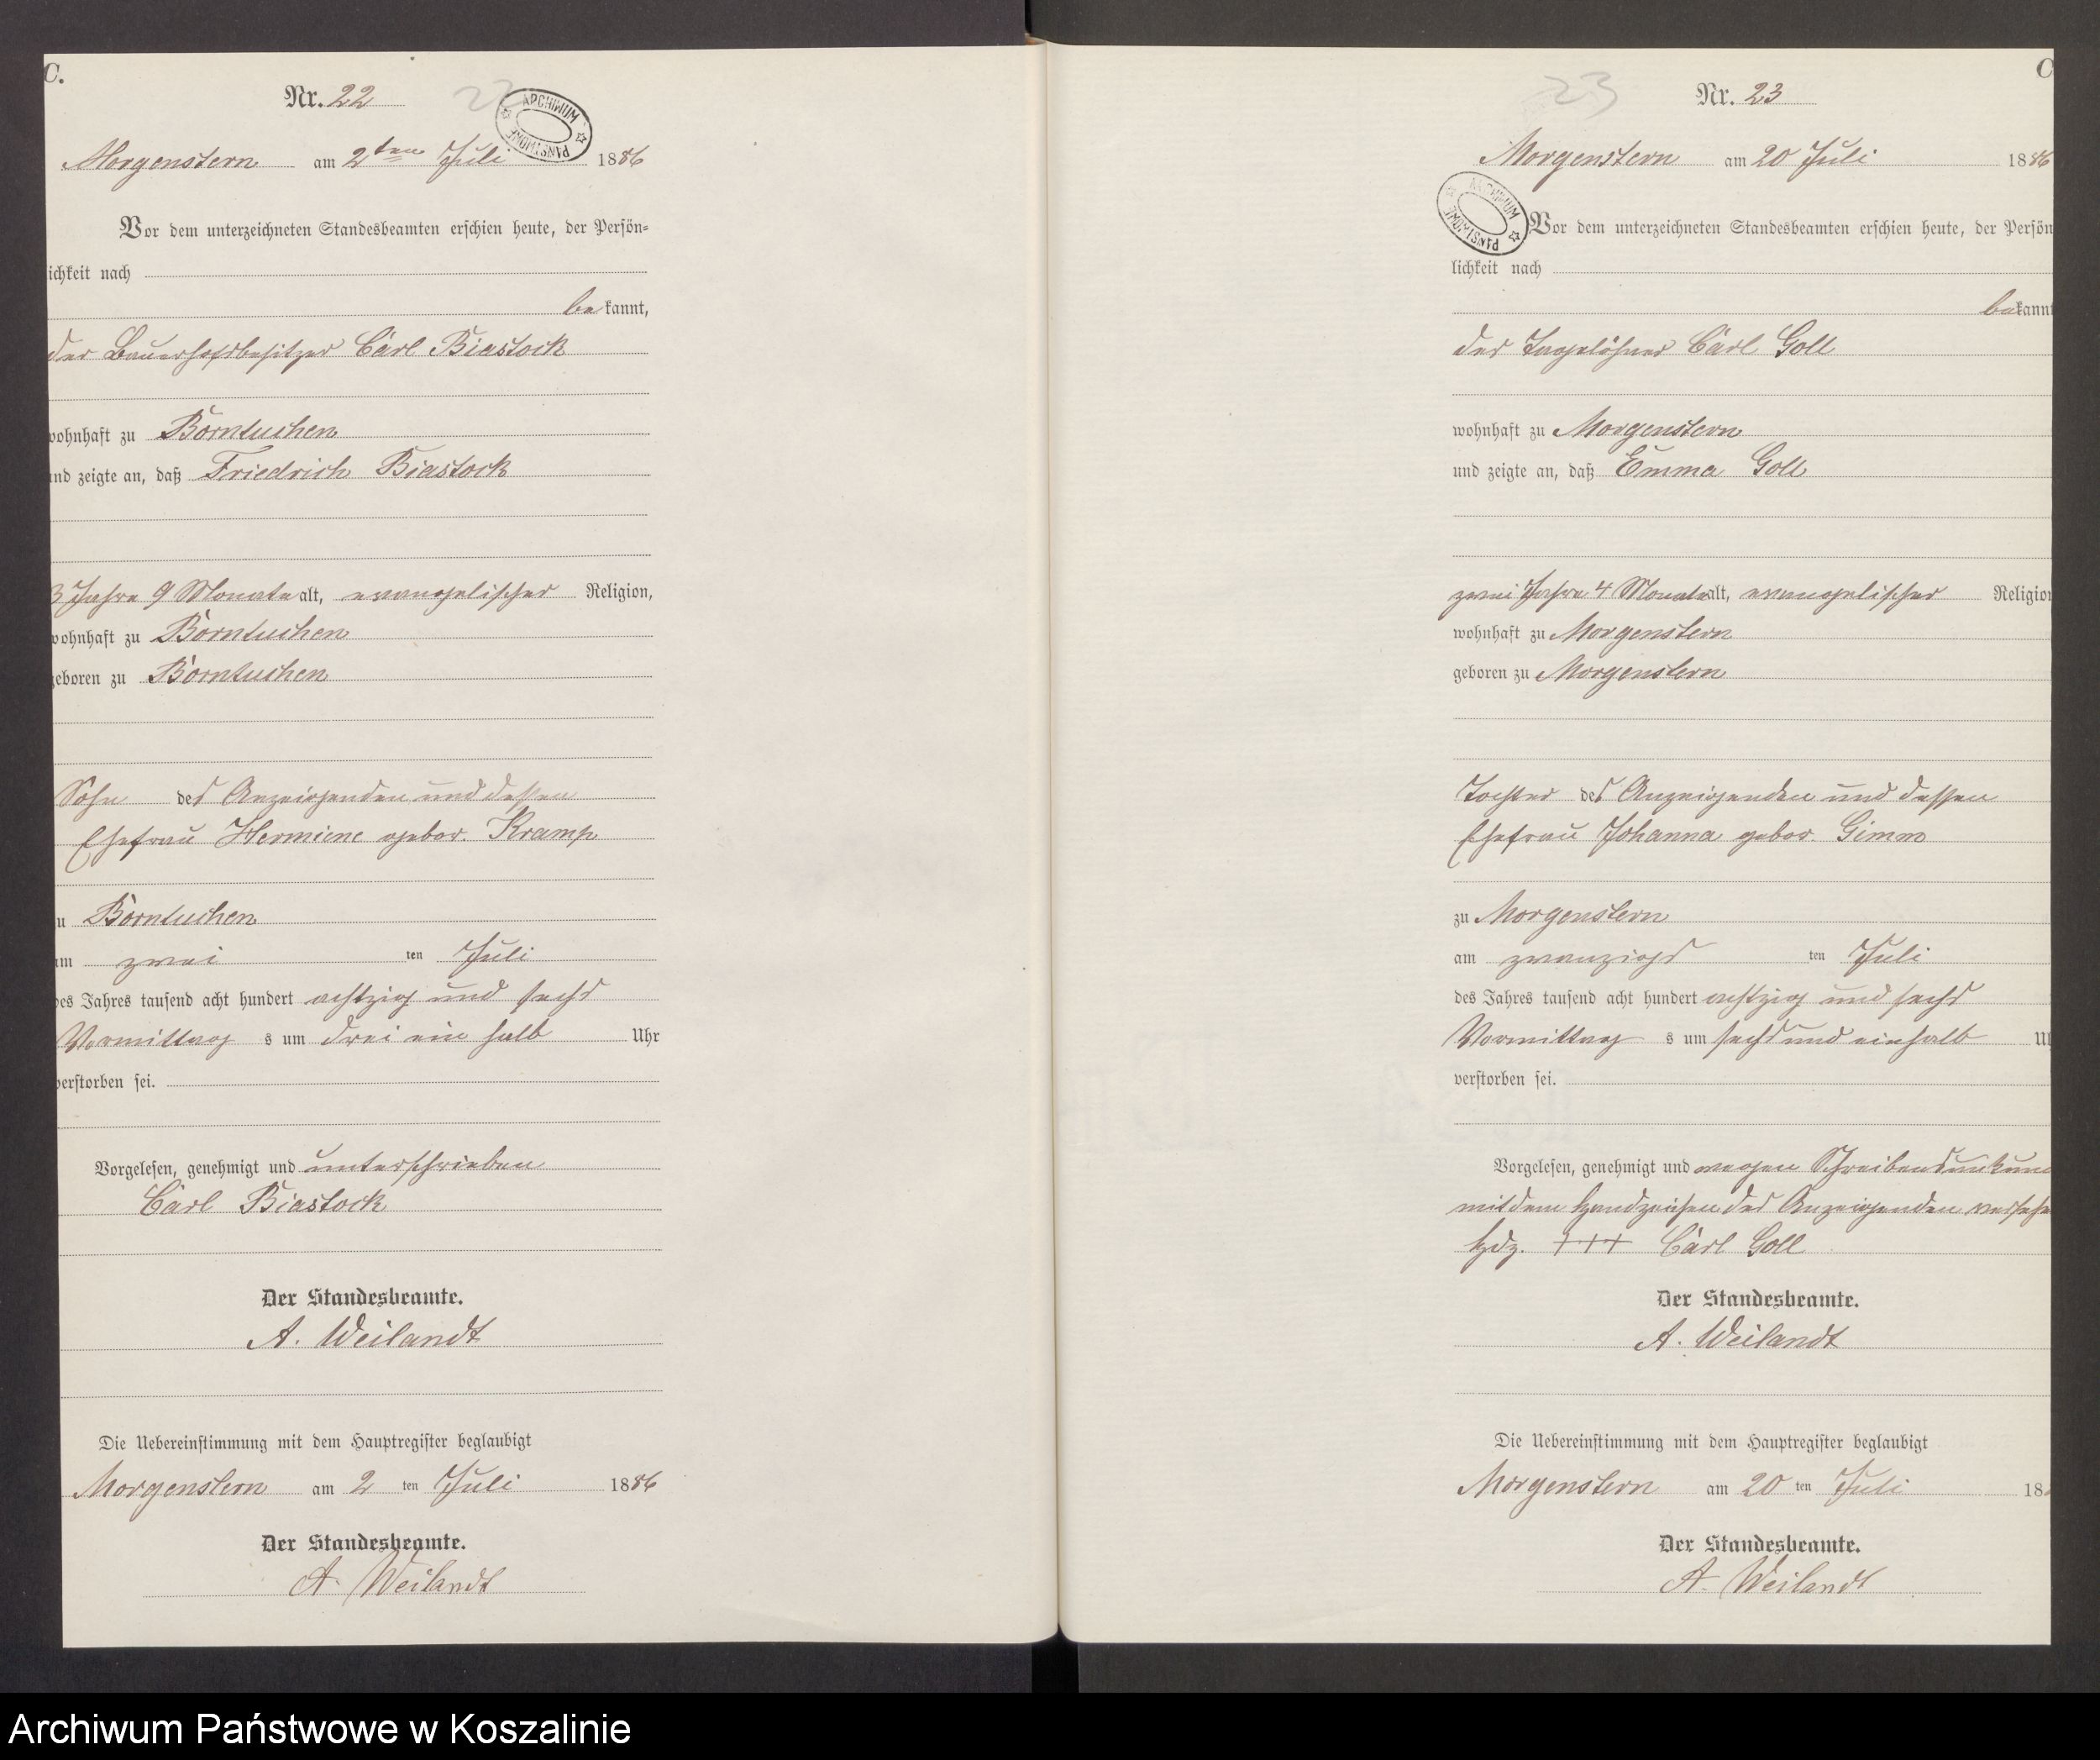 C.
Nr. 22
22
ARCHIWUM PAŃSTWOWE
Morgenstern am 2ten Juli 1886
Vor dem unterzeichneten Standesbeamten erschien heute, der Persön-
ichkeit nach
bekannt,
der Bauerhofsbesitzer Carl Biastock
wohnhaft zu Borntuchen
und zeigte an, daß Friedrich Biastock
3 Jahre 9 Monate alt, evangelischer Religion,
wohnhaft zu Borntuchen
geboren zu Borntuchen
Sohn des Anzeigenden und dessen
Ehefrau Hermiene gebor. Kramp
zu Borntuchen
am zwei ten Juli
des Jahres tausend acht hundert achtzig und sechs
Vormittag s um drei ein halb Uhr
verstorben sei.
Vorgelesen, genehmigt und unterschrieben
Carl Biastock
Der Standesbeamte.
A. Weilandt
Die Uebereinstimmung mit dem Hauptregister beglaubigt
Morgenstern am 2 ten Juli 1886
Der Standesbeamte.
A. Weilandt
C
23
Nr. 23
Morgenstern am 20 Juli 1886
ARCHIWUM PAŃSTWOWE
Vor dem unterzeichneten Standesbeamten erschien heute, der Persön
lichkeit nach
bekannt
der Tagelöhner Carl Goll
wohnhaft zu Morgenstern
und zeigte an, daß Emma Goll
zwei Jahre 4 Monate alt, evangelischer Religion
wohnhaft zu Morgenstern
geboren zu Morgenstern
Tochter des Anzeigenden und dessen
Ehefrau Johanna gebor. Gimm
zu Morgenstern
am zwanzigs ten Juli
des Jahres tausend acht hundert achtzig und sechs
Vormittag s um sechs und einhalb Uh
verstorben sei.
Vorgelesen, genehmigt und wegen Schreibensunkun
mit dem Handzeichen des Anzeigenden versehe
Hdz. +++ Carl Goll
Der Standesbeamte.
A. Weilandt
Die Uebereinstimmung mit dem Hauptregister beglaubigt
Morgenstern am 20 ten Juli 18
Der Standesbeamte.
A. Weilandt
Archiwum Państwowe w Koszalinie